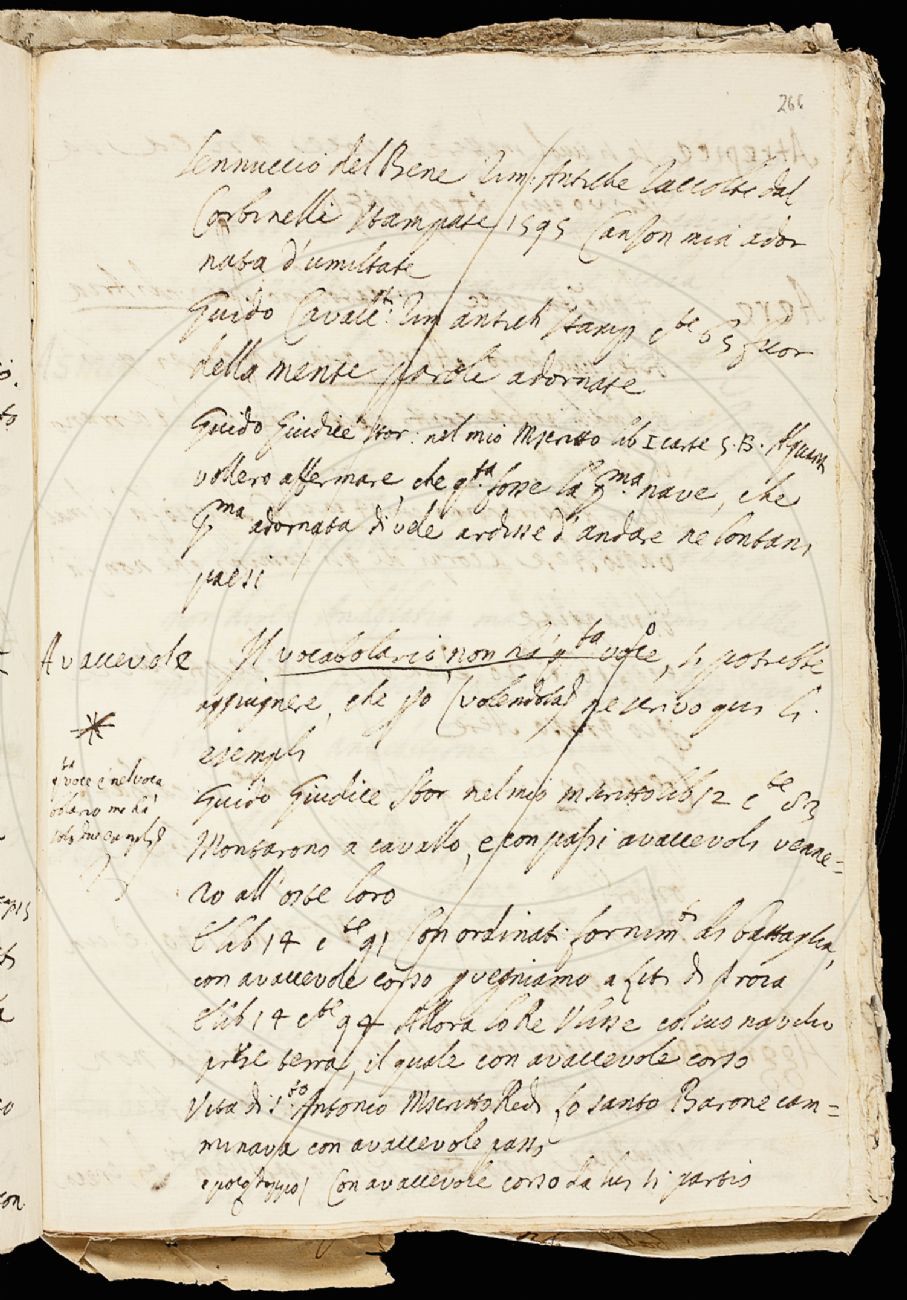 266
Sennuccio del Bene Rim: Antiche Raccolte dal
Corbinelli Stampate 1595 Canson mia ador
nata d'umiltate
Guido Cavalc.ti Rim antich Stamp c.te 65 fuor
della mente parole adornate
Guido Giudice Stor: nel mio Mscritto lib I carte 5.B.
vollero affermare, che q.ta fosse la p.ma nave, che
p.ma adornata di vele ardisse d'andare ne lontani
paesi
Avaccevole Il vocabolario non ha q.ta voce, si potrebbe
aggiugnere, che però (volendola) ne scrivo qui li
esempli
*
q.ta voce è nel voca
bolario ma ha
solo due esempli
Guido Giudice Stor nel mio mscritto lib 12 c.te 83
Montarono a cavallo, e con passi avaccevoli venne=
ro all'oste loro
E lib 14 c.te 91 Con ordinati fornim.ti di battaglia,
con avaccevole corso pvegniamo a liti di Troia
E lib 14 c.te 94 Allora lo Re Ulisse col suo navilio
prese terra, il quale con avaccevole corso
Vita di S.to Antonio Mscritto Redi Lo santo Barone cam=
minava con avaccevole passo
e poco doppo Con avaccevole corso da lui si partio